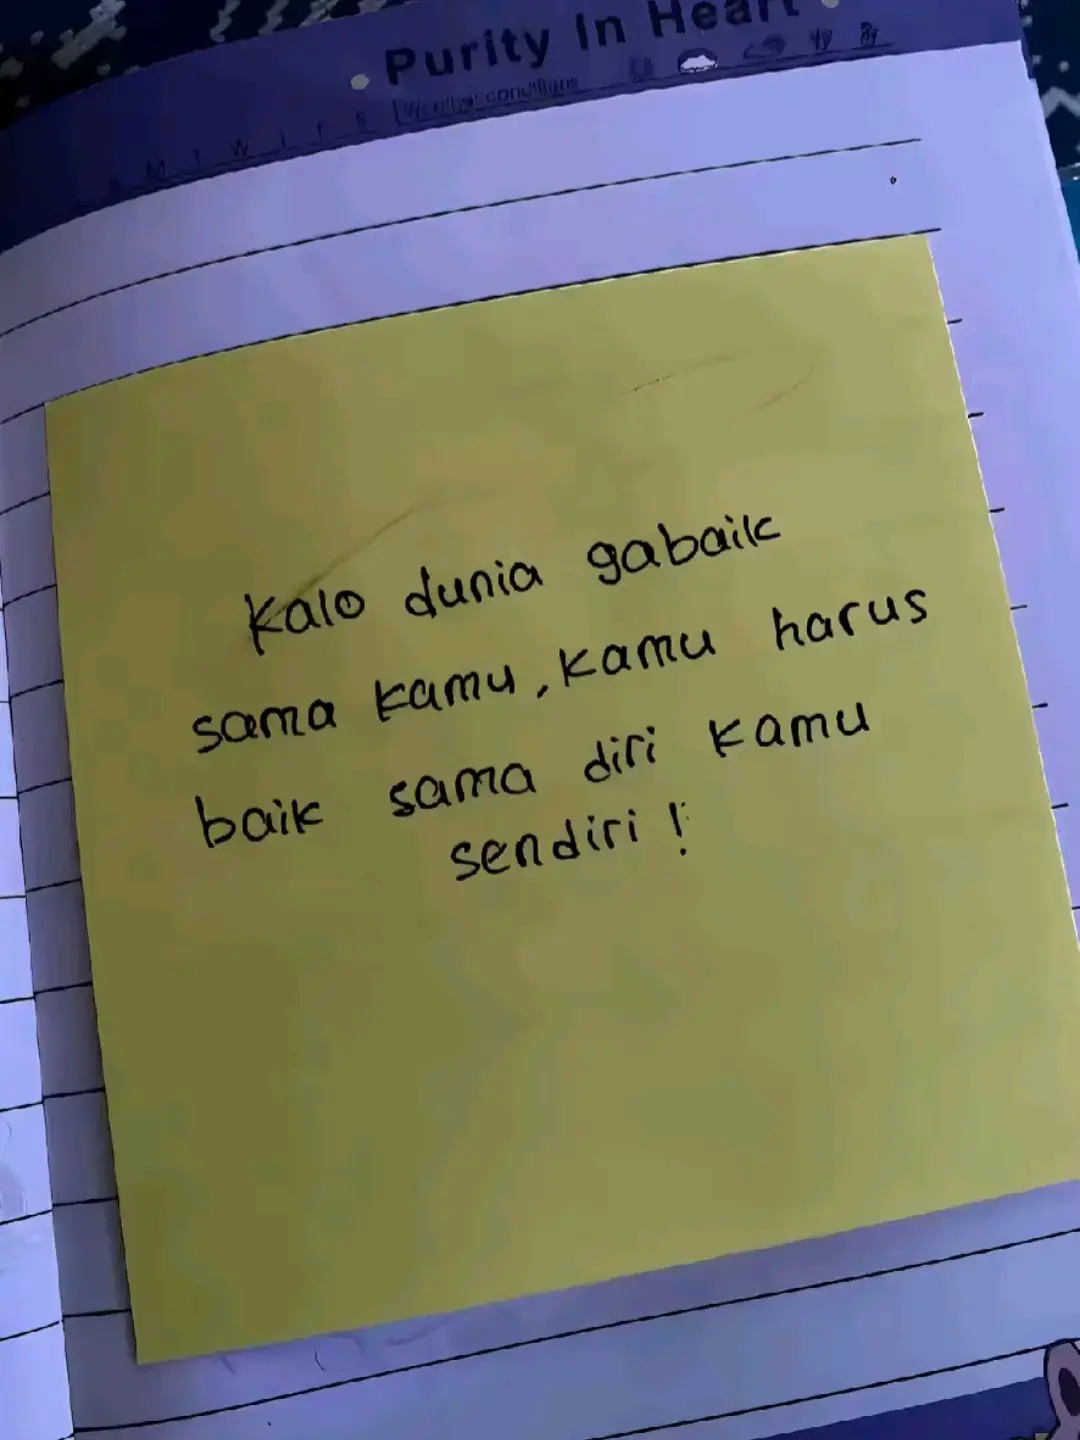 Purity In Heart
M T W T F S Weather conditions
Kalo dunia gabaik
sama kamu, kamu harus
baik sama diri kamu
sendiri !